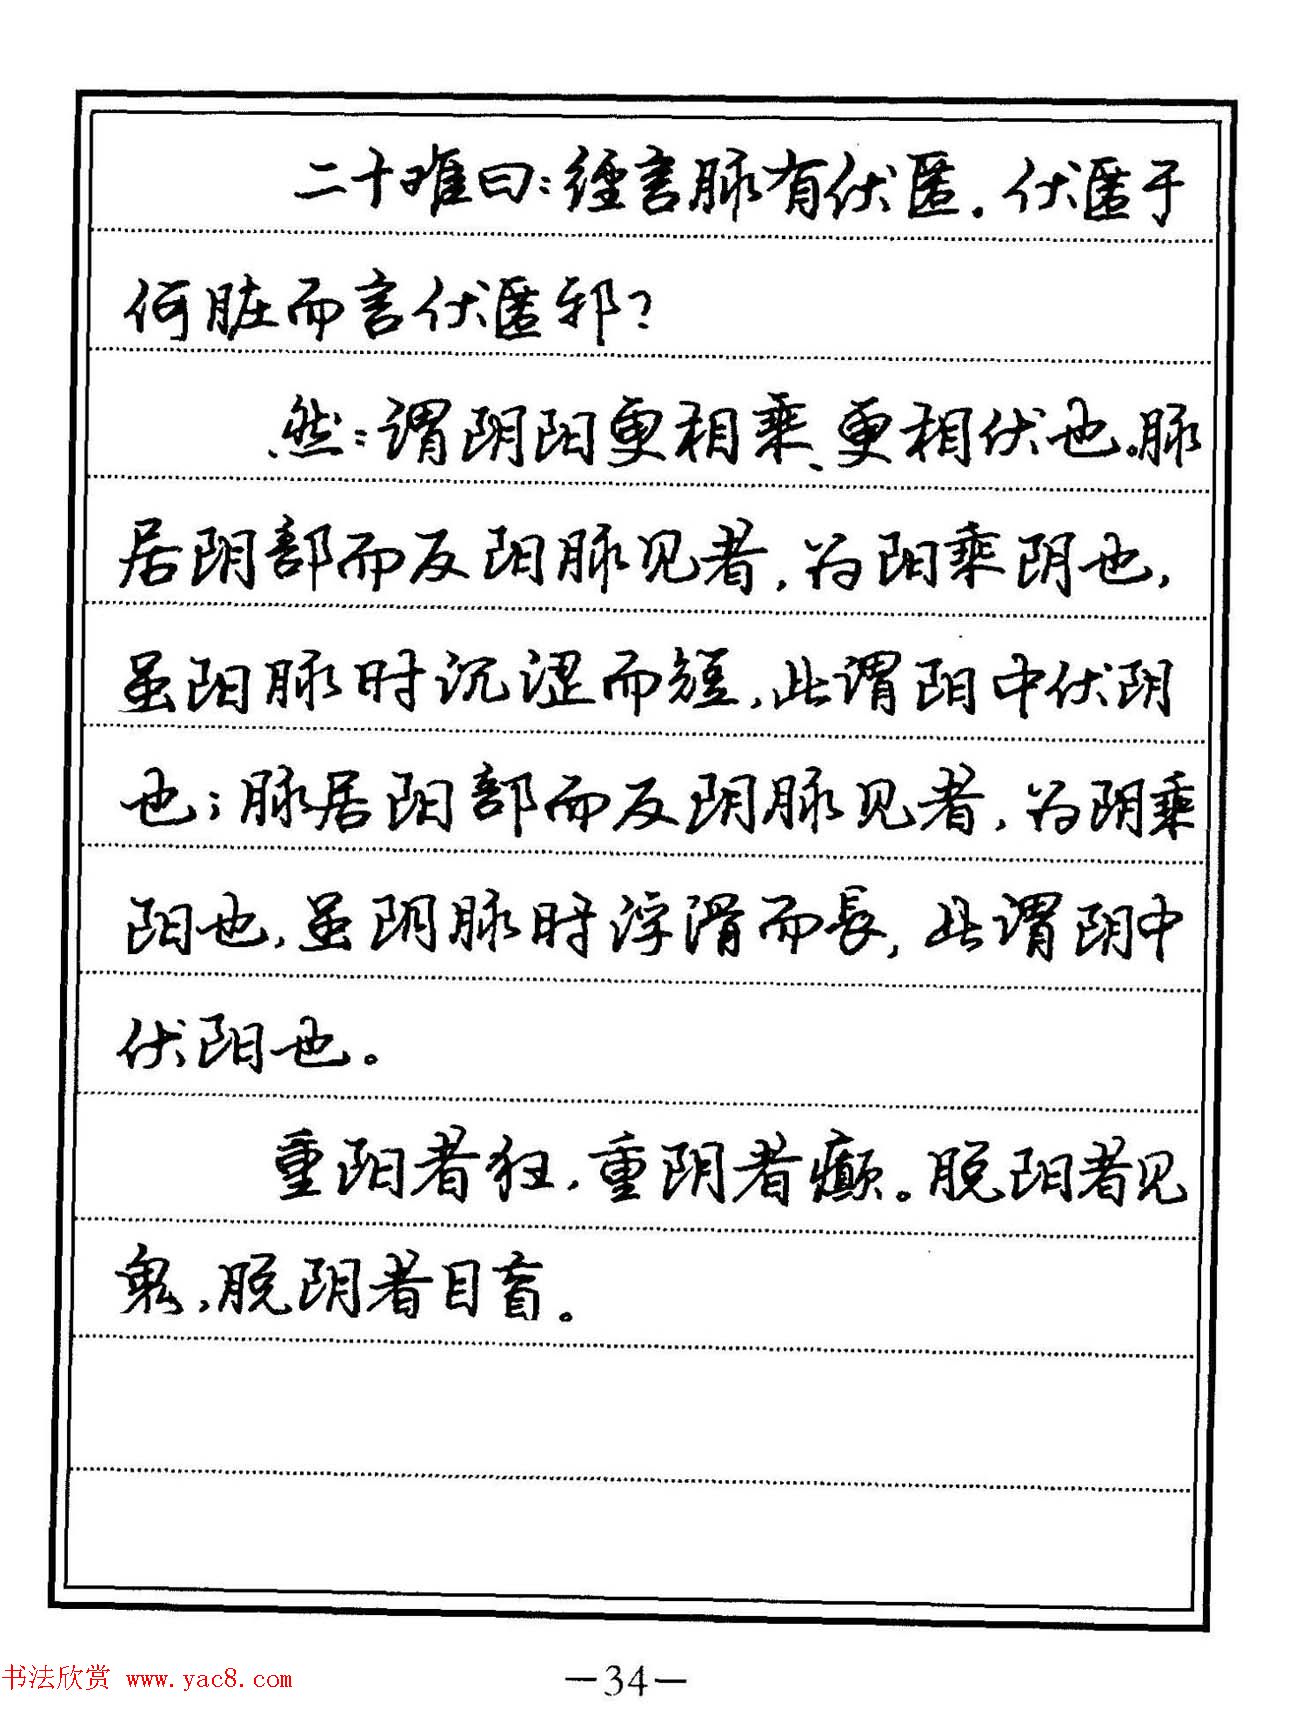 二十难曰：经言脉有伏匿．伏匿于
何脏而言伏匿邪？
然：谓阴阳更相乘、更相伏也。脉
居阴部而反阳脉见者，为阳乘阴也，
虽阳脉时沉涩而短，此谓阳中伏阴
也；脉居阳部而反阴脉见者，为阴乘
阳也，虽阴脉时浮滑而長，此谓阴中
伏阳也。
重阳者狂，重阴者癫。脱阳者见
鬼，脱阴者目盲。
—34—
书法欣赏 www.yac8.com